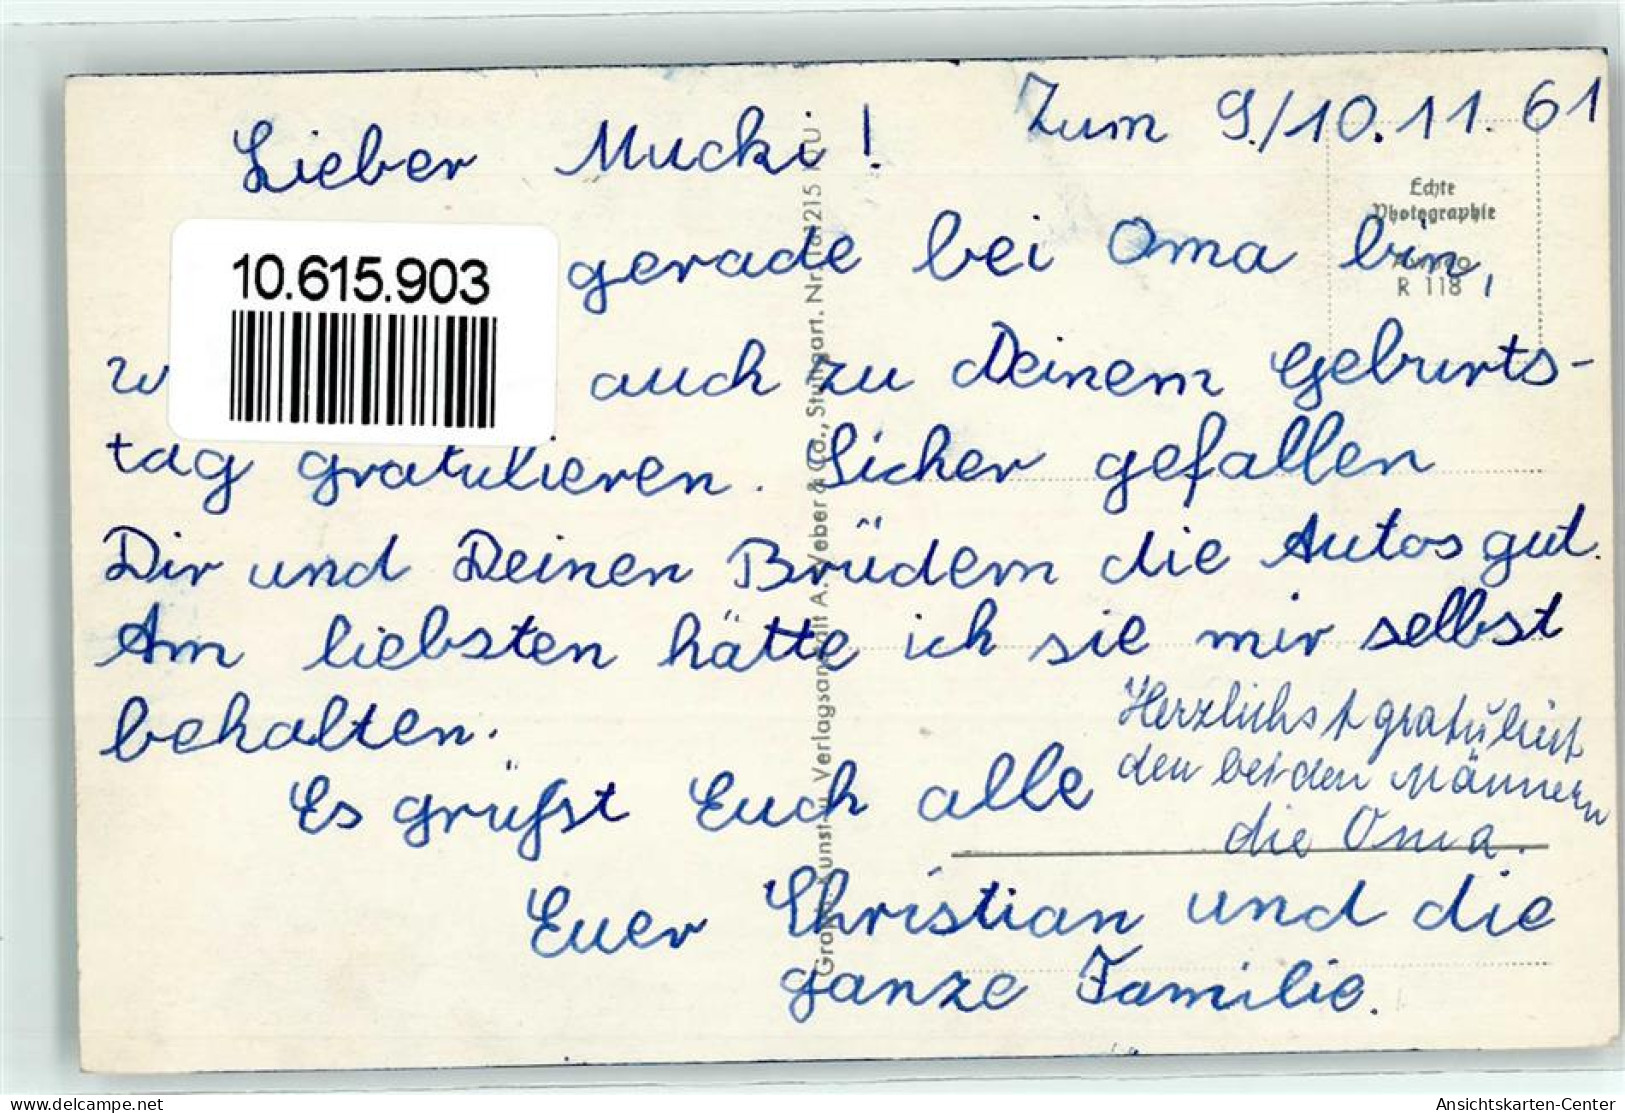 Zum 9./10.11.61
Lieber Mucki!
gerade bei Oma bin,
auch zu Deinem Geburts-
tag gratulieren. Sicher gefallen
Dir und Deinen Brüdern die Autos gut.
Am liebsten hätte ich sie mir selbst
behalten.
Es grüßt Euch alle
Euer Christian und die
ganze Familie.
Herzlichst gratuliert
den beiden Männern
die Oma.
10.615.903
Echte
Photographie
R 118
Kunst- u. Verlagsanstalt A. Weber & Co., Stuttgart. Nr.
oldthing.de
Ansichtskarten-Center